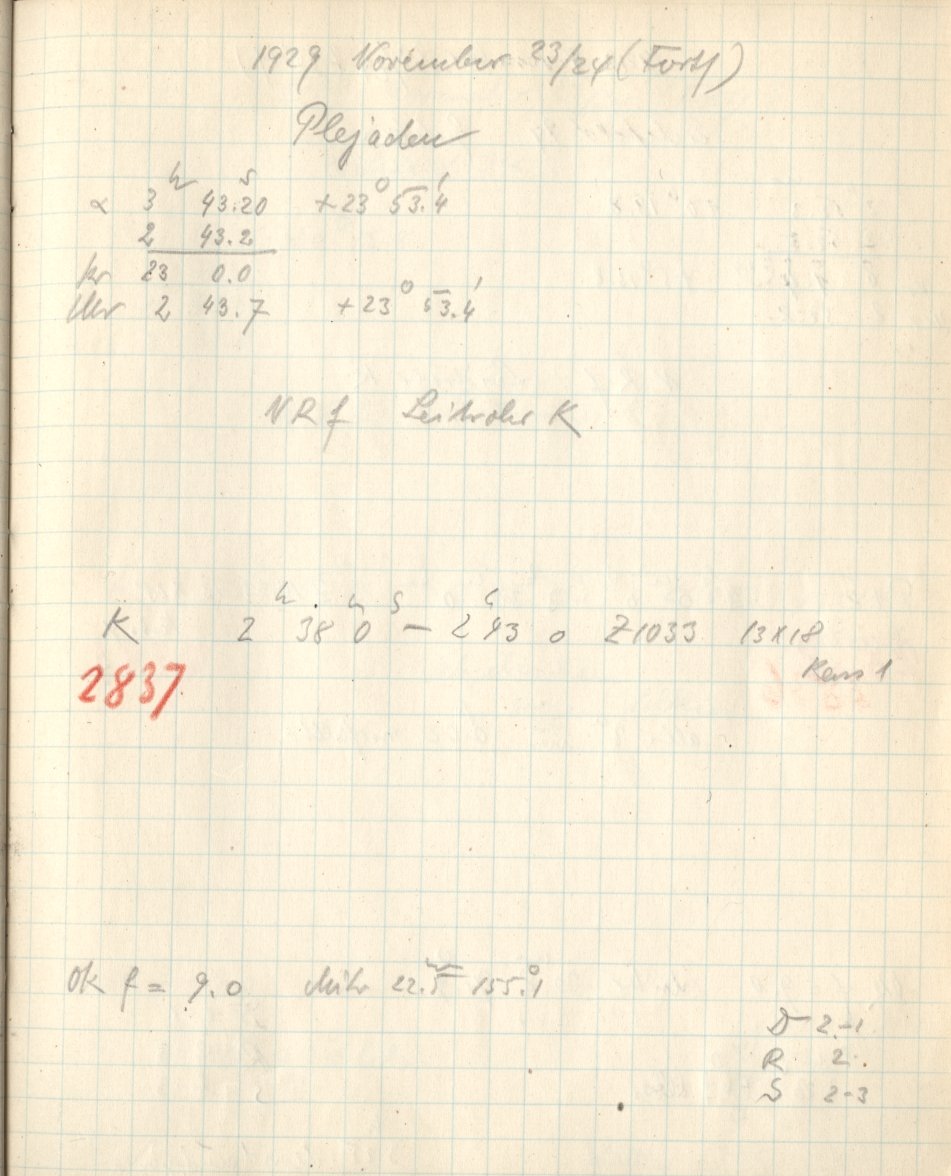 1929 November 23/24 (Forts)
Plejaden
α 3h 43.20s +23° 53.4'
2 43.2
Kr 23 0.0
Uhr 2 43.7 +23° 53.4'
NRf Leitrohr K
K 2h 38m 0s – 2h 43 0 Z1033 13x18
Kass 1
2837
Ok f = 9.0 Mikr 22.5 155.1°
D 2-1
R 2
S 2-3